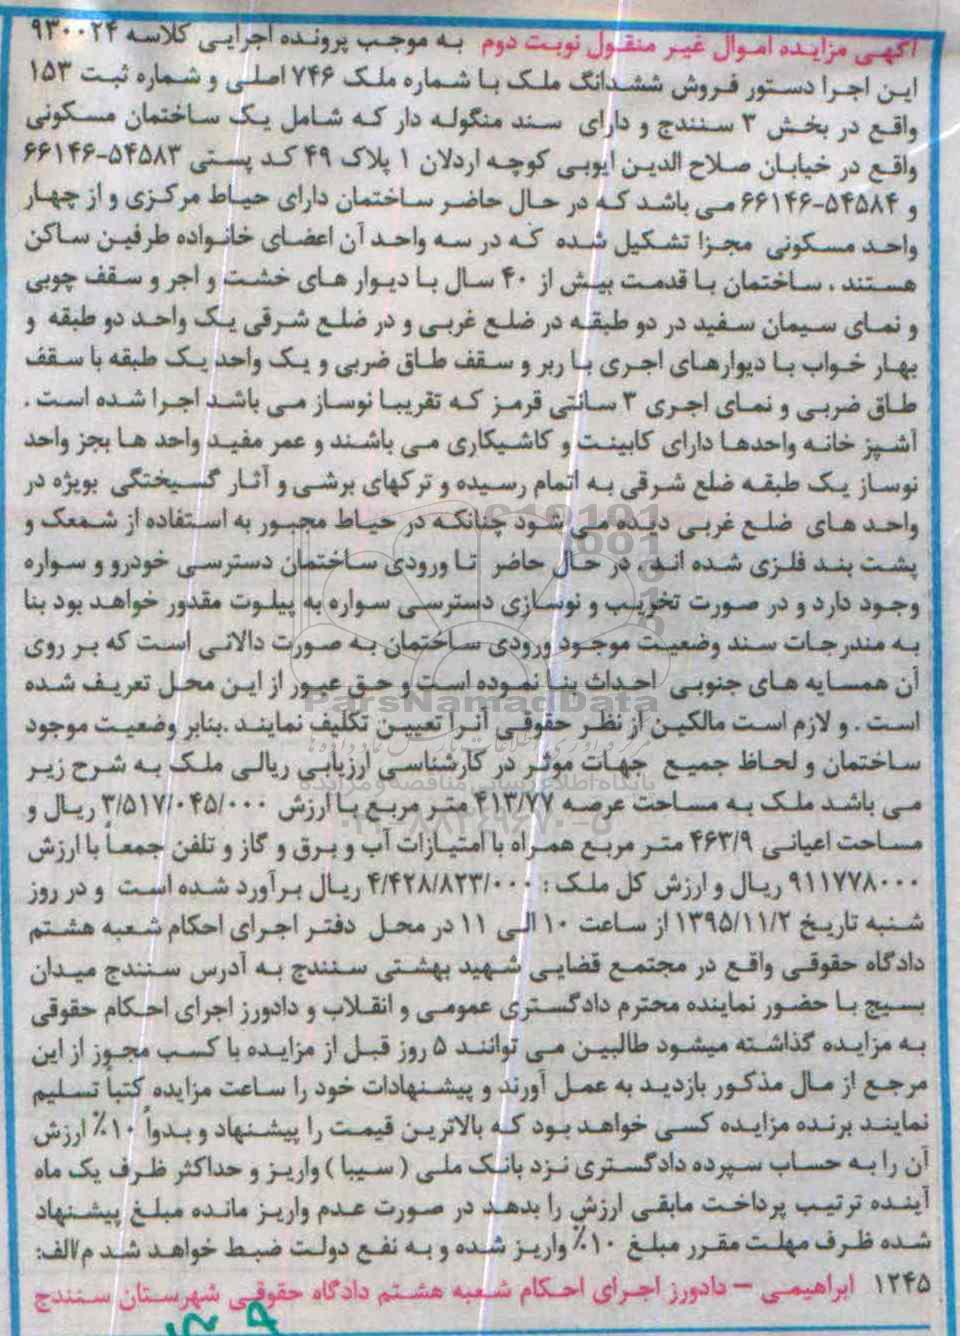 آگهی مزایده اموال غیر منقول نوبت دوم به موجب پرونده اجرایی کلاسه ۹۳۰۰۲۴
این اجرا دستور فروش ششدانگ ملک با شماره ملک ۷۴۶ اصلی و شماره ثبت ۱۵۳
واقع در بخش ۳ سنندج و دارای سند منگوله دار که شامل یک ساختمان مسکونی
واقع در خیابان صلاح الدین ایوبی کوچه اردلان ۱ پلاک ۴۹ کد پستی ۵۴۵۸۳-۶۶۱۴۶
و ۵۴۵۸۴-۶۶۱۴۶ می باشد که در حال حاضر ساختمان دارای حیاط مرکزی و از چهار
واحد مسکونی مجزا تشکیل شده که در سه واحد آن اعضای خانواده طرفین ساکن
هستند . ساختمان با قدمت بیش از ۴۰ سال با دیوار های خشت و اجر و سقف چوبی
و نمای سیمان سفید در دو طبقه در ضلع غربی و در ضلع شرقی یک واحد دو طبقه و
بهار خواب با دیوارهای اجری با ربر و سقف طاق ضربی و یک واحد یک طبقه با سقف
طاق ضربی و نمای اجری ۳ سانتی قرمز که تقریبا نوساز می باشد اجرا شده است .
آشپز خانه واحدها دارای کابینت و کاشیکاری می باشند و عمر مفید واحد ها بجز واحد
نوساز یک طبقه ضلع شرقی به اتمام رسیده و ترکهای برشی و آثار گسیختگی بویژه در
واحد های ضلع غربی دیده می شود چنانکه در حیاط مجبور به استفاده از شمعک و
پشت بند فلزی شده اند . در حال حاضر تا ورودی ساختمان دسترسی خودرو و سواره
وجود دارد و در صورت تخریب و نوسازی دسترسی سواره به پیلوت مقدور خواهد بود بنا
به مندرجات سند وضعیت موجود ورودی ساختمان به صورت دالانی است که بر روی
آن همسایه های جنوبی احداث بنا نموده است و حق عبور از این محل تعریف شده
است . و لازم است مالکین از نظر حقوقی آنرا تعیین تکلیف نمایند .بنابر وضعیت موجود
ساختمان و لحاظ جمیع جهات موثر در کارشناسی ارزیابی ریالی ملک به شرح زیر
می باشد ملک به مساحت عرصه ۴۱۳/۷۷ متر مربع با ارزش ۳/۵۱۷/۰۴۵/۰۰۰ ریال و
مساحت اعیانی ۴۶۳/۹ متر مربع همراه با امتیازات آب و برق و گاز و تلفن جمعاً با ارزش
۹۱۱۷۷۸۰۰۰ ریال و ارزش کل ملک : ۴/۴۲۸/۸۲۳/۰۰۰ ریال برآورد شده است و در روز
شنبه تاریخ ۱۳۹۵/۱۱/۲ از ساعت ۱۰ الی ۱۱ در محل دفتر اجرای احکام شعبه هشتم
دادگاه حقوقی واقع در مجتمع قضایی شهید بهشتی سنندج به آدرس سنندج میدان
بسیج با حضور نماینده محترم دادگستری عمومی و انقلاب و دادورز اجرای احکام حقوقی
به مزایده گذاشته میشود طالبین می توانند ۵ روز قبل از مزایده با کسب مجوز از این
مرجع از مال مذکور بازدید به عمل آورند و پیشنهادات خود را ساعت مزایده کتباً تسلیم
نمایند برنده مزایده کسی خواهد بود که بالاترین قیمت را پیشنهاد و بدواً ۱۰٪ ارزش
آن را به حساب سپرده دادگستری نزد بانک ملی ( سیبا ) واریز و حداکثر ظرف یک ماه
آینده ترتیب پرداخت مابقی ارزش را بدهد در صورت عدم واریز مانده مبلغ پیشنهاد
شده ظرف مهلت مقرر مبلغ ۱۰٪ واریز شده و به نفع دولت ضبط خواهد شد م/الف:
۱۲۴۵ ابراهیمی – دادورز اجرای احکام شعبه هشتم دادگاه حقوقی شهرستان سنندج
ParsNamadData